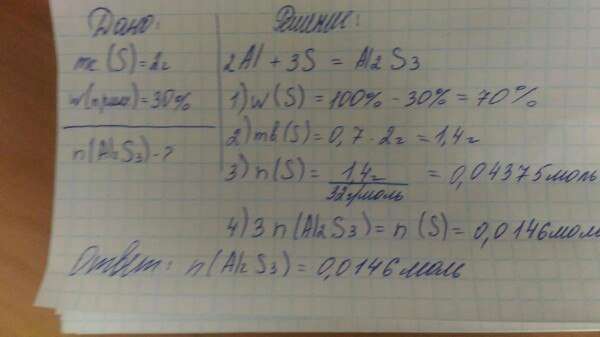 Дано:
mк (S) = 2г
w(прим) = 30%
n(Al2S3) - ?
Решение:
2Al + 3S = Al2S3
1) w(S) = 100% - 30% = 70%
2) mв(S) = 0,7 · 2г = 1,4г
3) n(S) = 1,4г / 32г/моль = 0,04375моль
4) 3 n(Al2S3) = n (S) = 0,0146моль
Ответ: n(Al2S3) = 0,0146моль